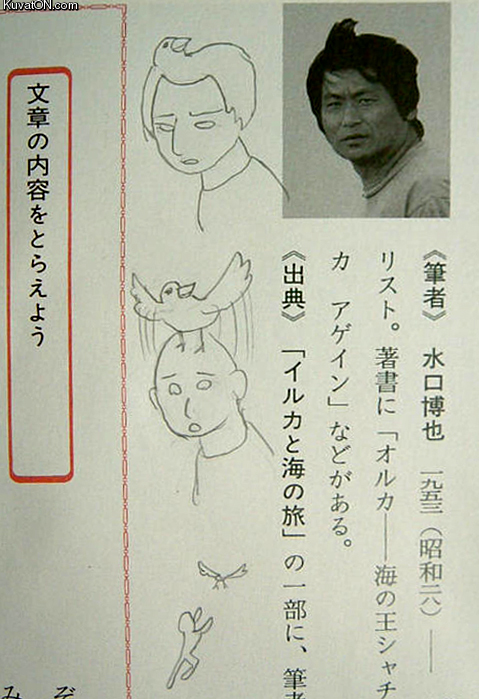 KuvatON.com
《筆者》 水口博也 一九五三(昭和二八)――
リスト。著書に「オルカ――海の王シャチ
カ アゲイン」などがある。
《出典》 「イルカと海の旅」の一部に、筆者
文章の内容をとらえよう
ぞ
み